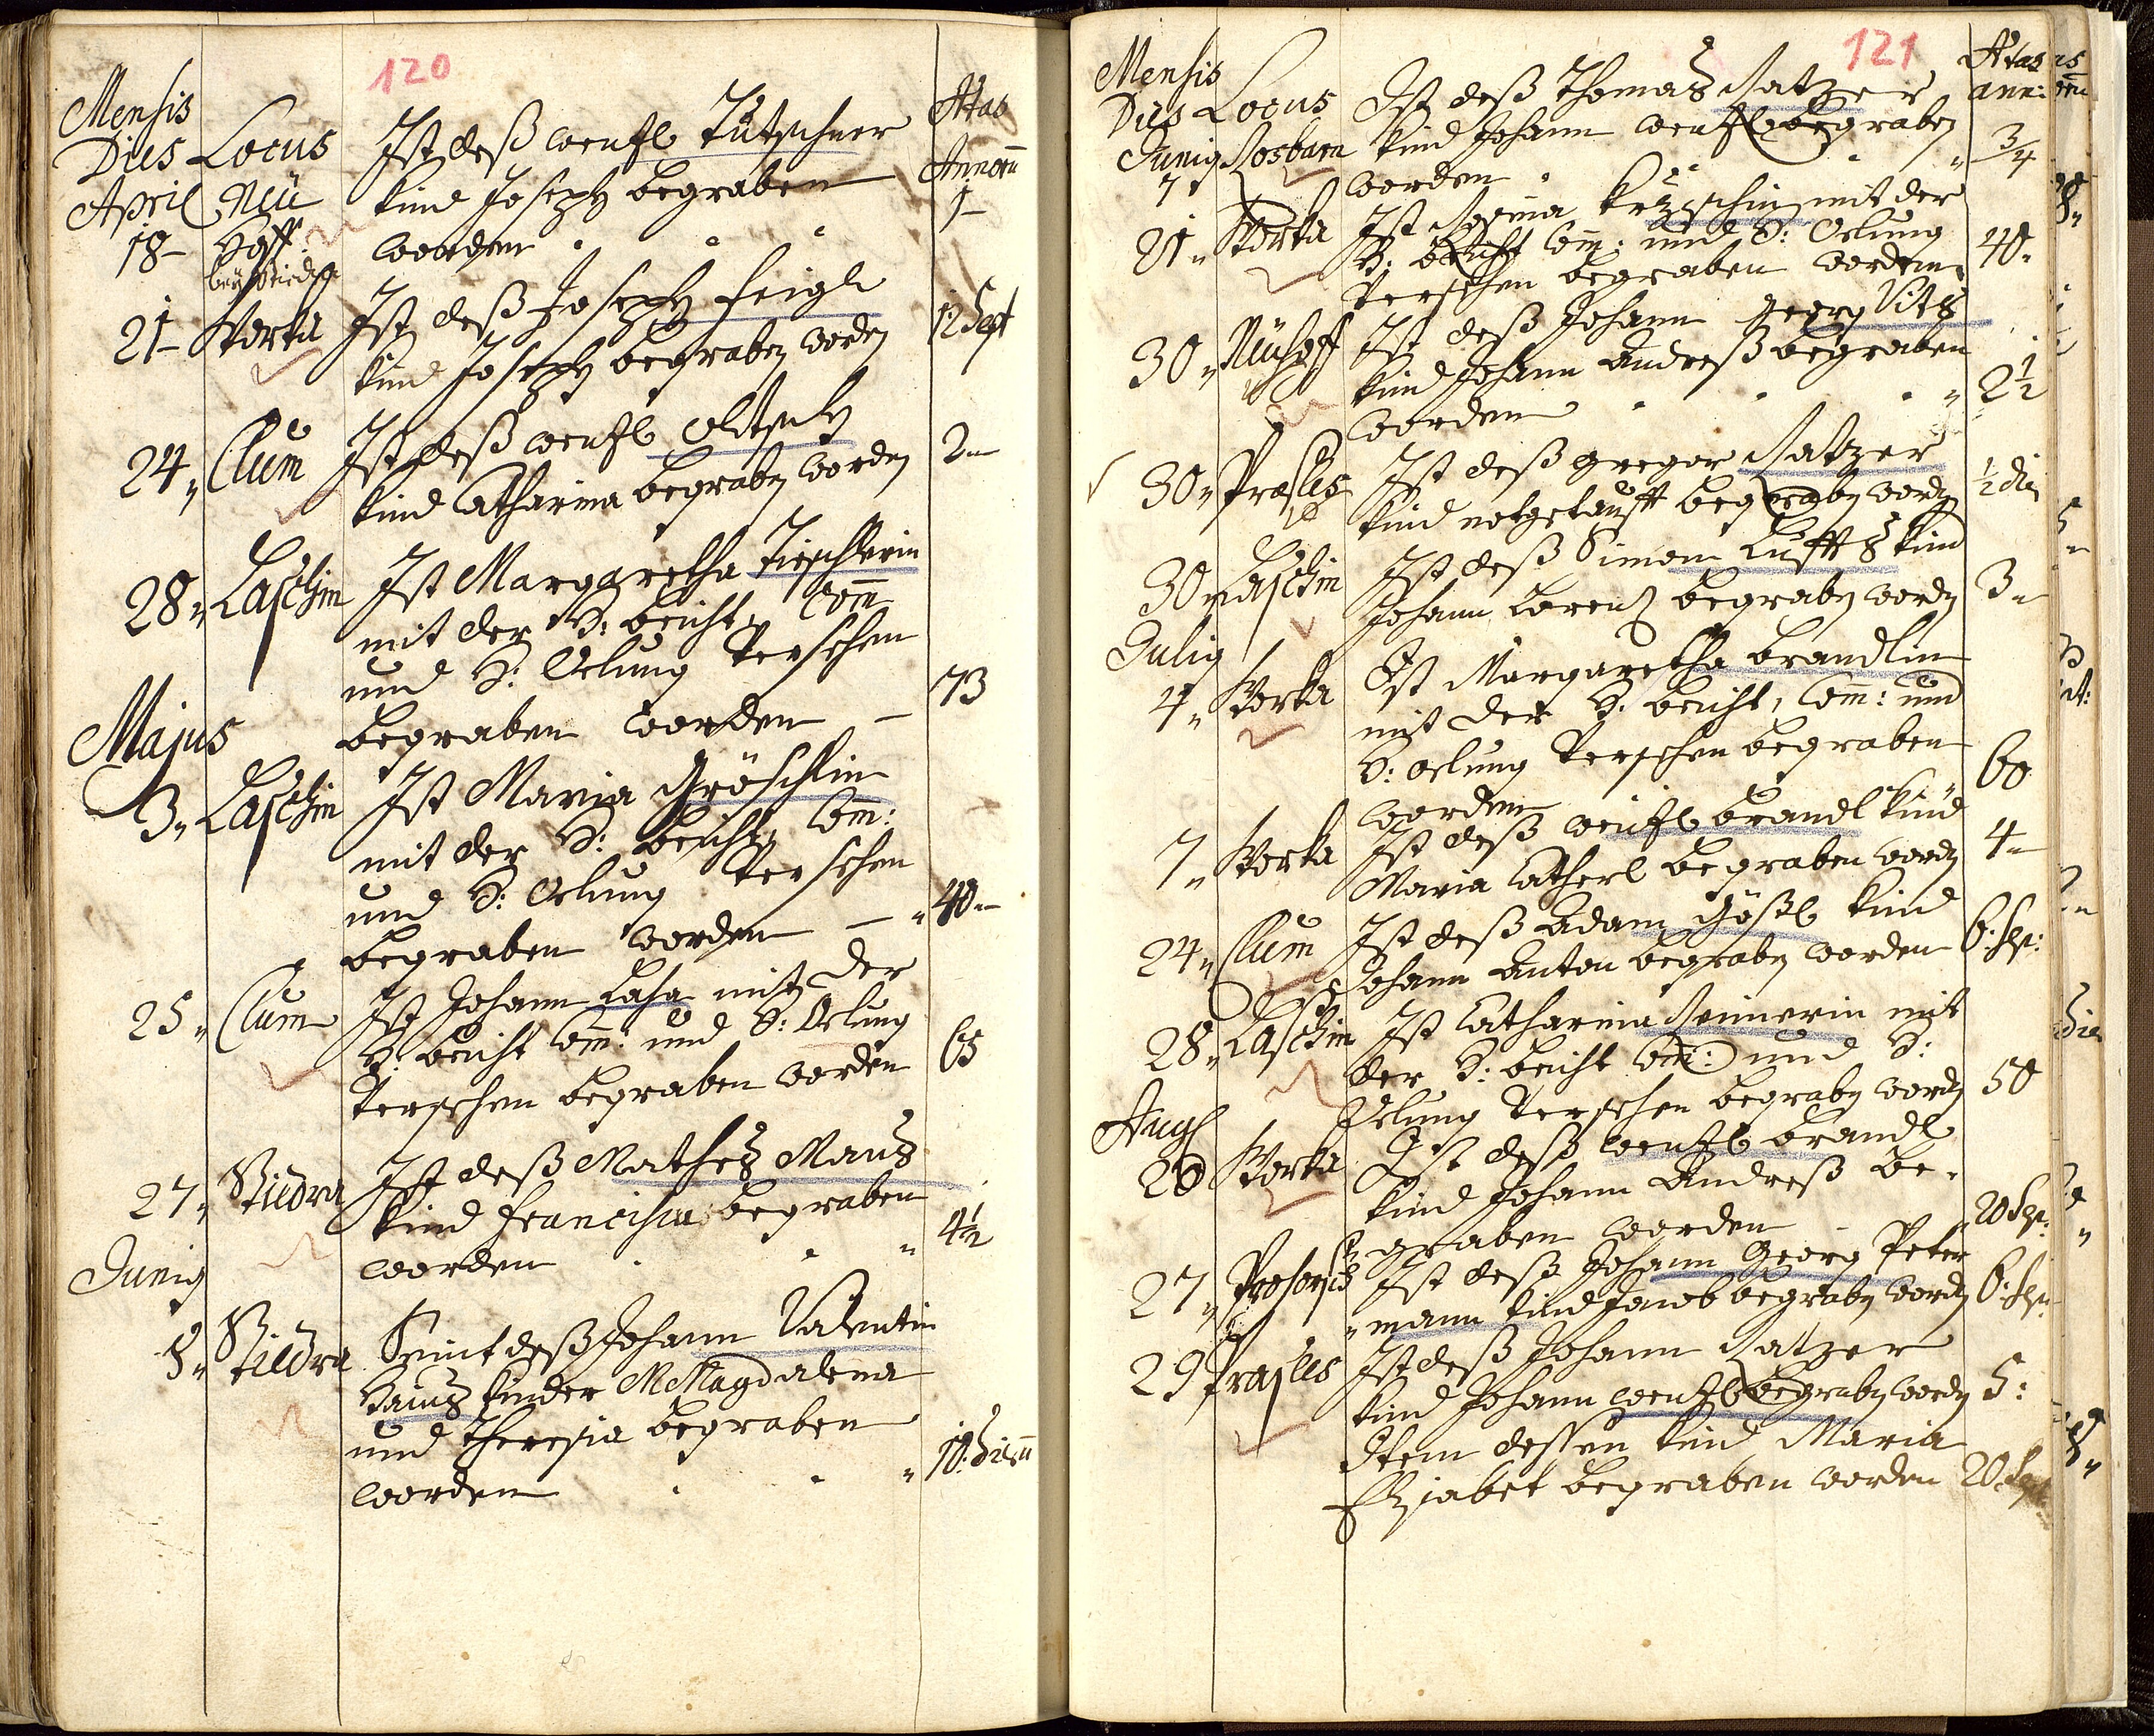 120
Mensis
Dies Locus
Ætas
Annorū
April Neü
18 Hoff
beÿ Stiedra
Ist deß Wentzl Tütschner
kind Joseph begraben
worden
1
21 Worka
Ist deß Joseph Feigl
kind Joseph begraben worden
12 Sept
24 Clum
Ist deß Wentzl
kind Catharina begraben worden
2
28 Laschin
Ist Margaretha Tieschlerin
mit der H: beicht, Com̄
und H: Oelung versehen
begraben worden
73
Majus
3 Laschin
Ist Maria Gröschlin
mit der H: beicht, Com̄:
und H: Oelung versehen
begraben worden
40
25 Clum
Ist Johann Lasa mit der
H: beicht Com̄: und H: Oelung
versehen begraben worden
65
27 Stiedra
Ist deß Mathes Maus
kind Francisca begraben
worden
4½
Junig
8 Stiedra
Seint deß Johann Valentin
Haus kinder M Magdalena
und Theresia begraben
worden
10: Dierū
121
Mensis
Dies Locus
Ætas
ann:
Junig Kosbarn
7
Ist deß Thomas Satzer
kind Johann Wentzl begraben
worden
3/4
21 Worka
Ist mit der
H: beicht Com̄: und H: Oelung
versehen begraben worden
40
30 Neühoff
Ist deß Johann Georg Vits
kind Johann Andreß begraben
worden
2½
30 Prasles
Ist deß Gregor Satzer
kind notgetaufft begraben worden
½ die
30 Laschin
Ist deß Simon Lufft kind
Johann Lorentz begraben worden
3
Julig
4 Worka
Ist Margaretha Brandlin
mit der H: beicht, Com̄: und
H: Oelung versehen begraben
worden
60
7 Worka
Ist deß Wentzl Brandl kind
Maria Catherl begraben worden
4
24 Clum
Ist deß Adam Gößl kind
Johann Anton begraben worden
6: Sep:
28 Laschin
Ist Catharina Rennerin mit
der H: beicht Com̄: und H:
Oelung versehen begraben worden
50
Aug
26 Worka
Ist deß Wentzl Brandl
kind Johann Andreß be-
graben worden
20 Sep:
27
Ist deß Johann Georg Peter
mann kind Jacob begraben worden
6: Sep:
29 Prasles
Ist deß Johann Satzer
kind Johann Wentzl begraben worden
5:
Item dessen kind Maria
Elisabet begraben worden
20 Sept